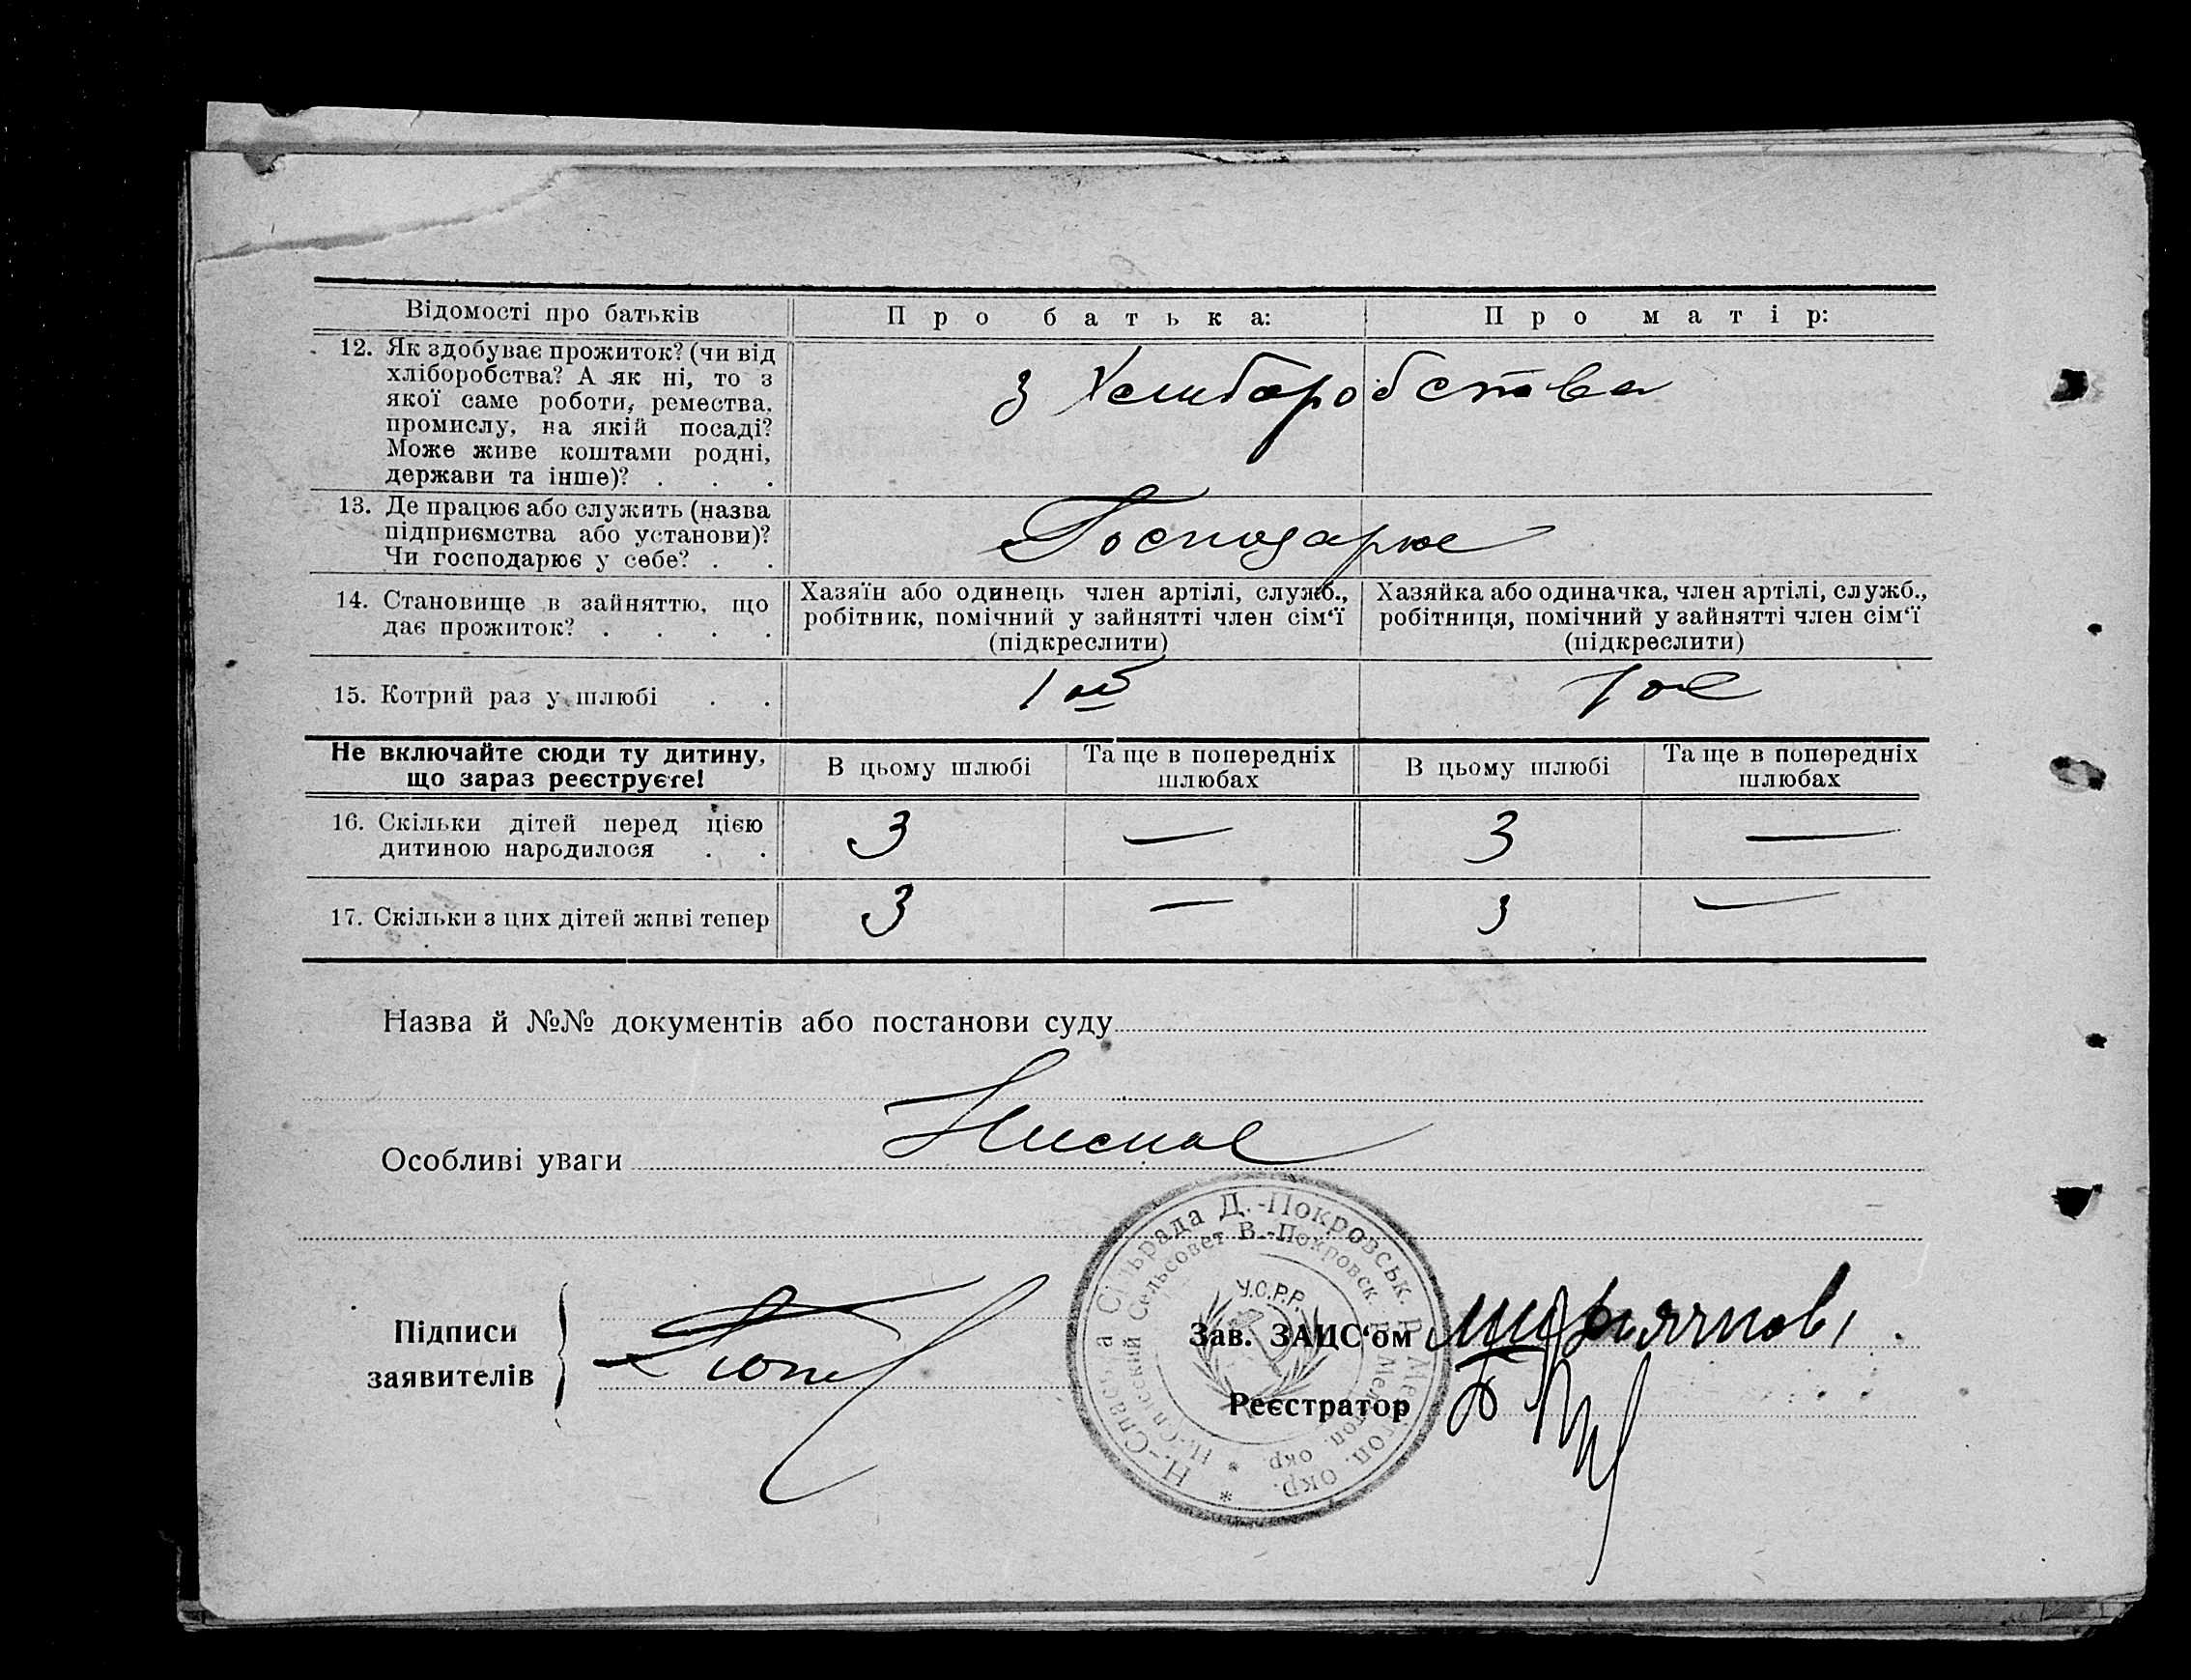 Відомості про батьків
Про батька:
Про матір:
12. Як здобуває прожиток? (чи від
хліборобства? А як ні, то з
якої саме роботи, ремества,
промислу, на якій посаді?
Може живе коштами родні,
держави та інше)? . . .
з Хлиборобства
13. Де працює або служить (назва
підприємства або установи)?
Чи господарює у себе? . .
Господарює
14. Становище в зайняттю, що
дає прожиток? . . . .
Хазяїн або одинець член артілі, служб.,
робітник, помічний у зайнятті член сім‘ї
(підкреслити)
Хазяйка або одиначка, член артілі, служб.,
робітниця, помічний у зайнятті член сім‘ї
(підкреслити)
15. Котрий раз у шлюбі . .
1ый
1ое
Не включайте сюди ту дитину,
що зараз реєструєте!
В цьому шлюбі
Та ще в попередніх
шлюбах
В цьому шлюбі
Та ще в попередніх
шлюбах
16. Скільки дітей перед цією
дитиною народилося . .
3 — 3 —
17. Скільки з цих дітей живі тепер
3 — 3 —
Назва й №№ документів або постанови суду
Особливі уваги
Підписи
заявителів
Зав. ЗАЦС‘ом
Реєстратор
Н.-Спаська Сільрада Д.-Покровськ. Р. Мелітоп. окр.
Н.-Спасский Сельсовет В.-Покровск. Р. Мелитоп. окр.
У.С.Р.Р.